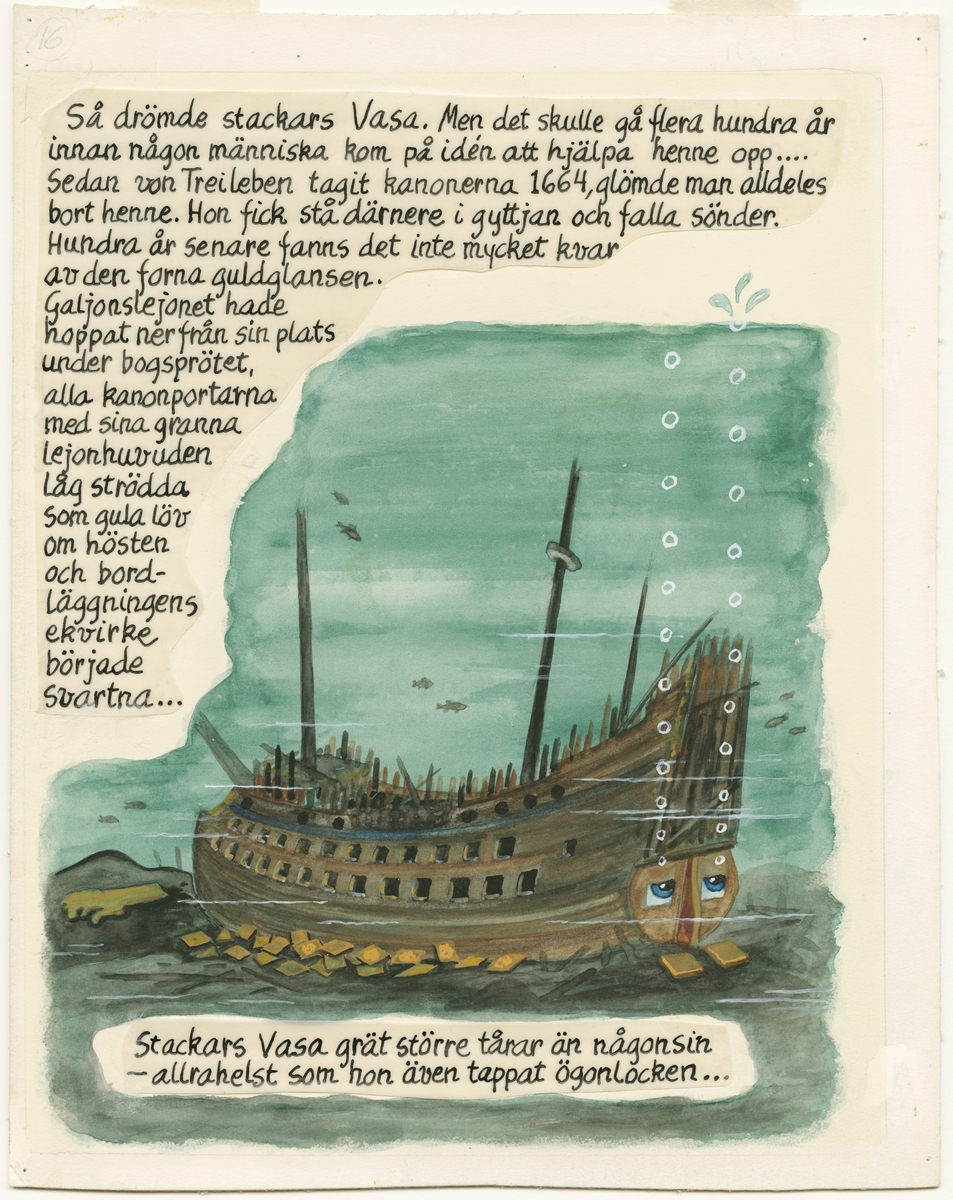 16
Så drömde stackars Vasa. Men det skulle gå flera hundra år
innan någon människa kom på idén att hjälpa henne opp....
Sedan von Treileben tagit kanonerna 1664, glömde man alldeles
bort henne. Hon fick stå därnere i gyttjan och falla sönder.
Hundra år senare fanns det inte mycket kvar
av den forna guldglansen.
Galjonslejonet hade
hoppat ner från sin plats
under bogsprötet,
alla kanonportarna
med sina granna
lejonhuvuden
låg strödda
som gula löv
om hösten
och bord-
läggningens
ekvirke
började
svartna...
Stackars Vasa grät större tårar än någonsin
– allrahelst som hon även tappat ögonlocken...